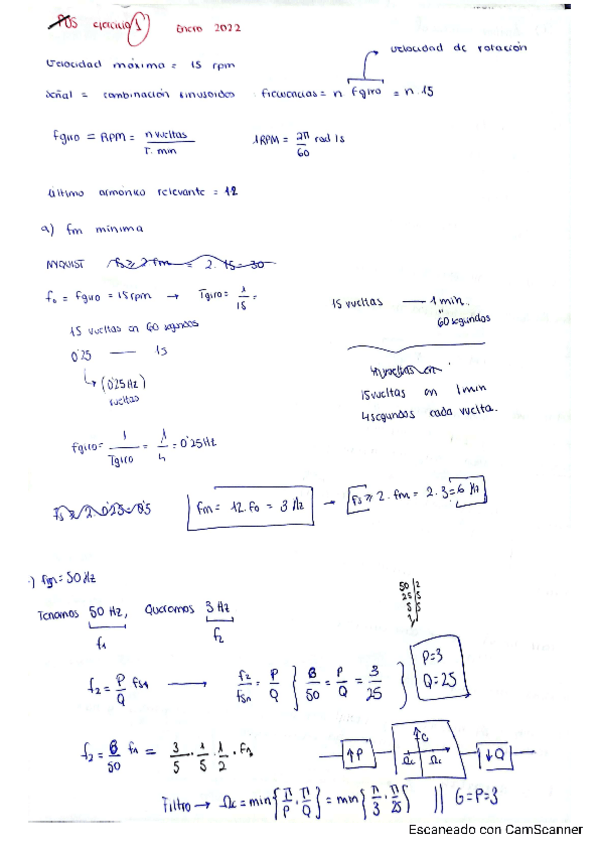 PDS ejercicio 1 Enero 2022
velocidad de rotación
Velocidad máxima = 15 rpm
Señal = combinación sinusoides frecuencias = n fgiro = n·15
fgiro = RPM = n vueltas / T. min 1RPM = 2π/60 rad/s
último armónico relevante = 12
a) fm mínima
NYQUIST fs ≥ 2 fm = 2·15 = 30
f₀ = fgiro = 15rpm → Tgiro = 1/15 =
15 vueltas — 1 min.
60 segundos
15 vueltas en 60 segundos
0'25 — 1s
(0'25 Hz)
vueltas
15 vueltas en 1 min
4 segundos cada vuelta.
fgiro = 1/Tgiro = 1/4 = 0'25Hz
fs ≥ 2·0'25 = 0'5
fm = 12·f₀ = 3 Hz → fs ≥ 2·fm = 2·3 = 6 Hz
) fm = 50 Hz
Tenemos 50 Hz, Queremos 3 Hz
f₁ f₂
50 2
25 5
5 5
1
f₂ = P/Q fs₁ → f₂/fs₁ = P/Q } 6/50 = P/Q = 3/25 } P=3
Q=25
f₂ = 6/50 f₁ = 3/5 · 1/5 · 1/2 · f₁
↑P G Ωc Ωc ↓Q
Filtro → Ωc = min{π/P, π/Q} = min{π/3, π/25} || G=P=3
Escaneado con CamScanner